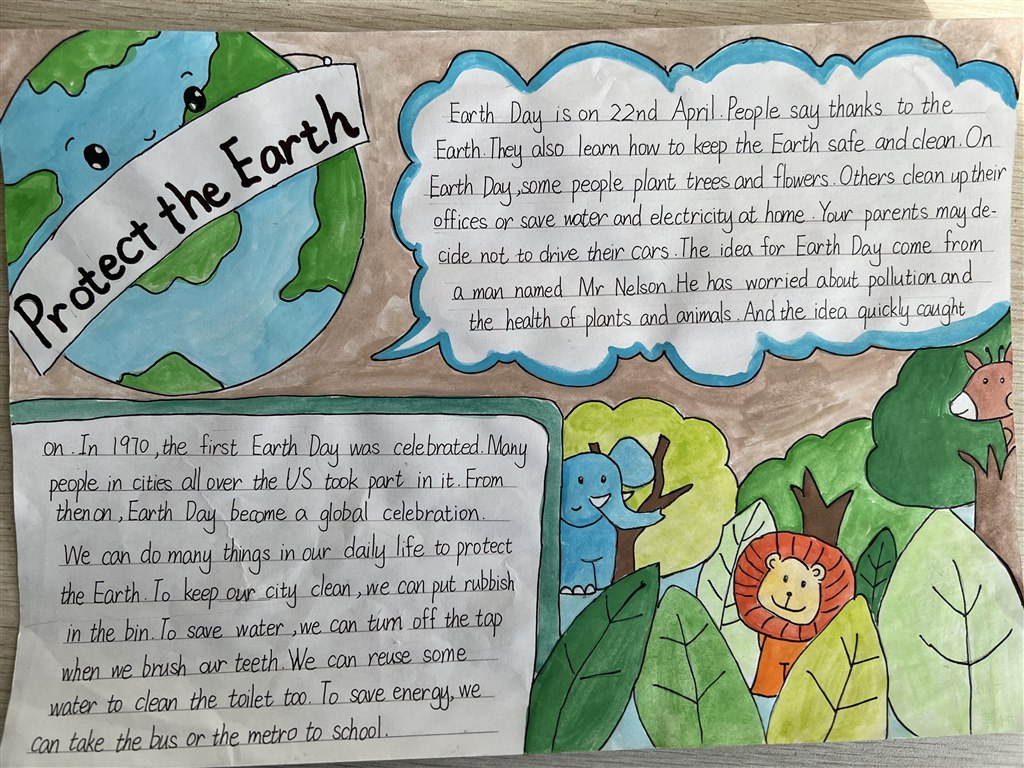 Protect the Earth
Earth Day is on 22nd April. People say thanks to the
Earth. They also learn how to keep the Earth safe and clean. On
Earth Day, some people plant trees and flowers. Others clean up their
offices or save water and electricity at home. Your parents may de-
cide not to drive their cars. The idea for Earth Day come from
a man named Mr Nelson. He has worried about pollution and
the health of plants and animals. And the idea quickly caught
on. In 1970, the first Earth Day was celebrated. Many
people in cities all over the US took part in it. From
then on, Earth Day become a global celebration.
We can do many things in our daily life to protect
the Earth. To keep our city clean, we can put rubbish
in the bin. To save water, we can turn off the tap
when we brush our teeth. We can reuse some
water to clean the toilet too. To save energy, we
can take the bus or the metro to school.